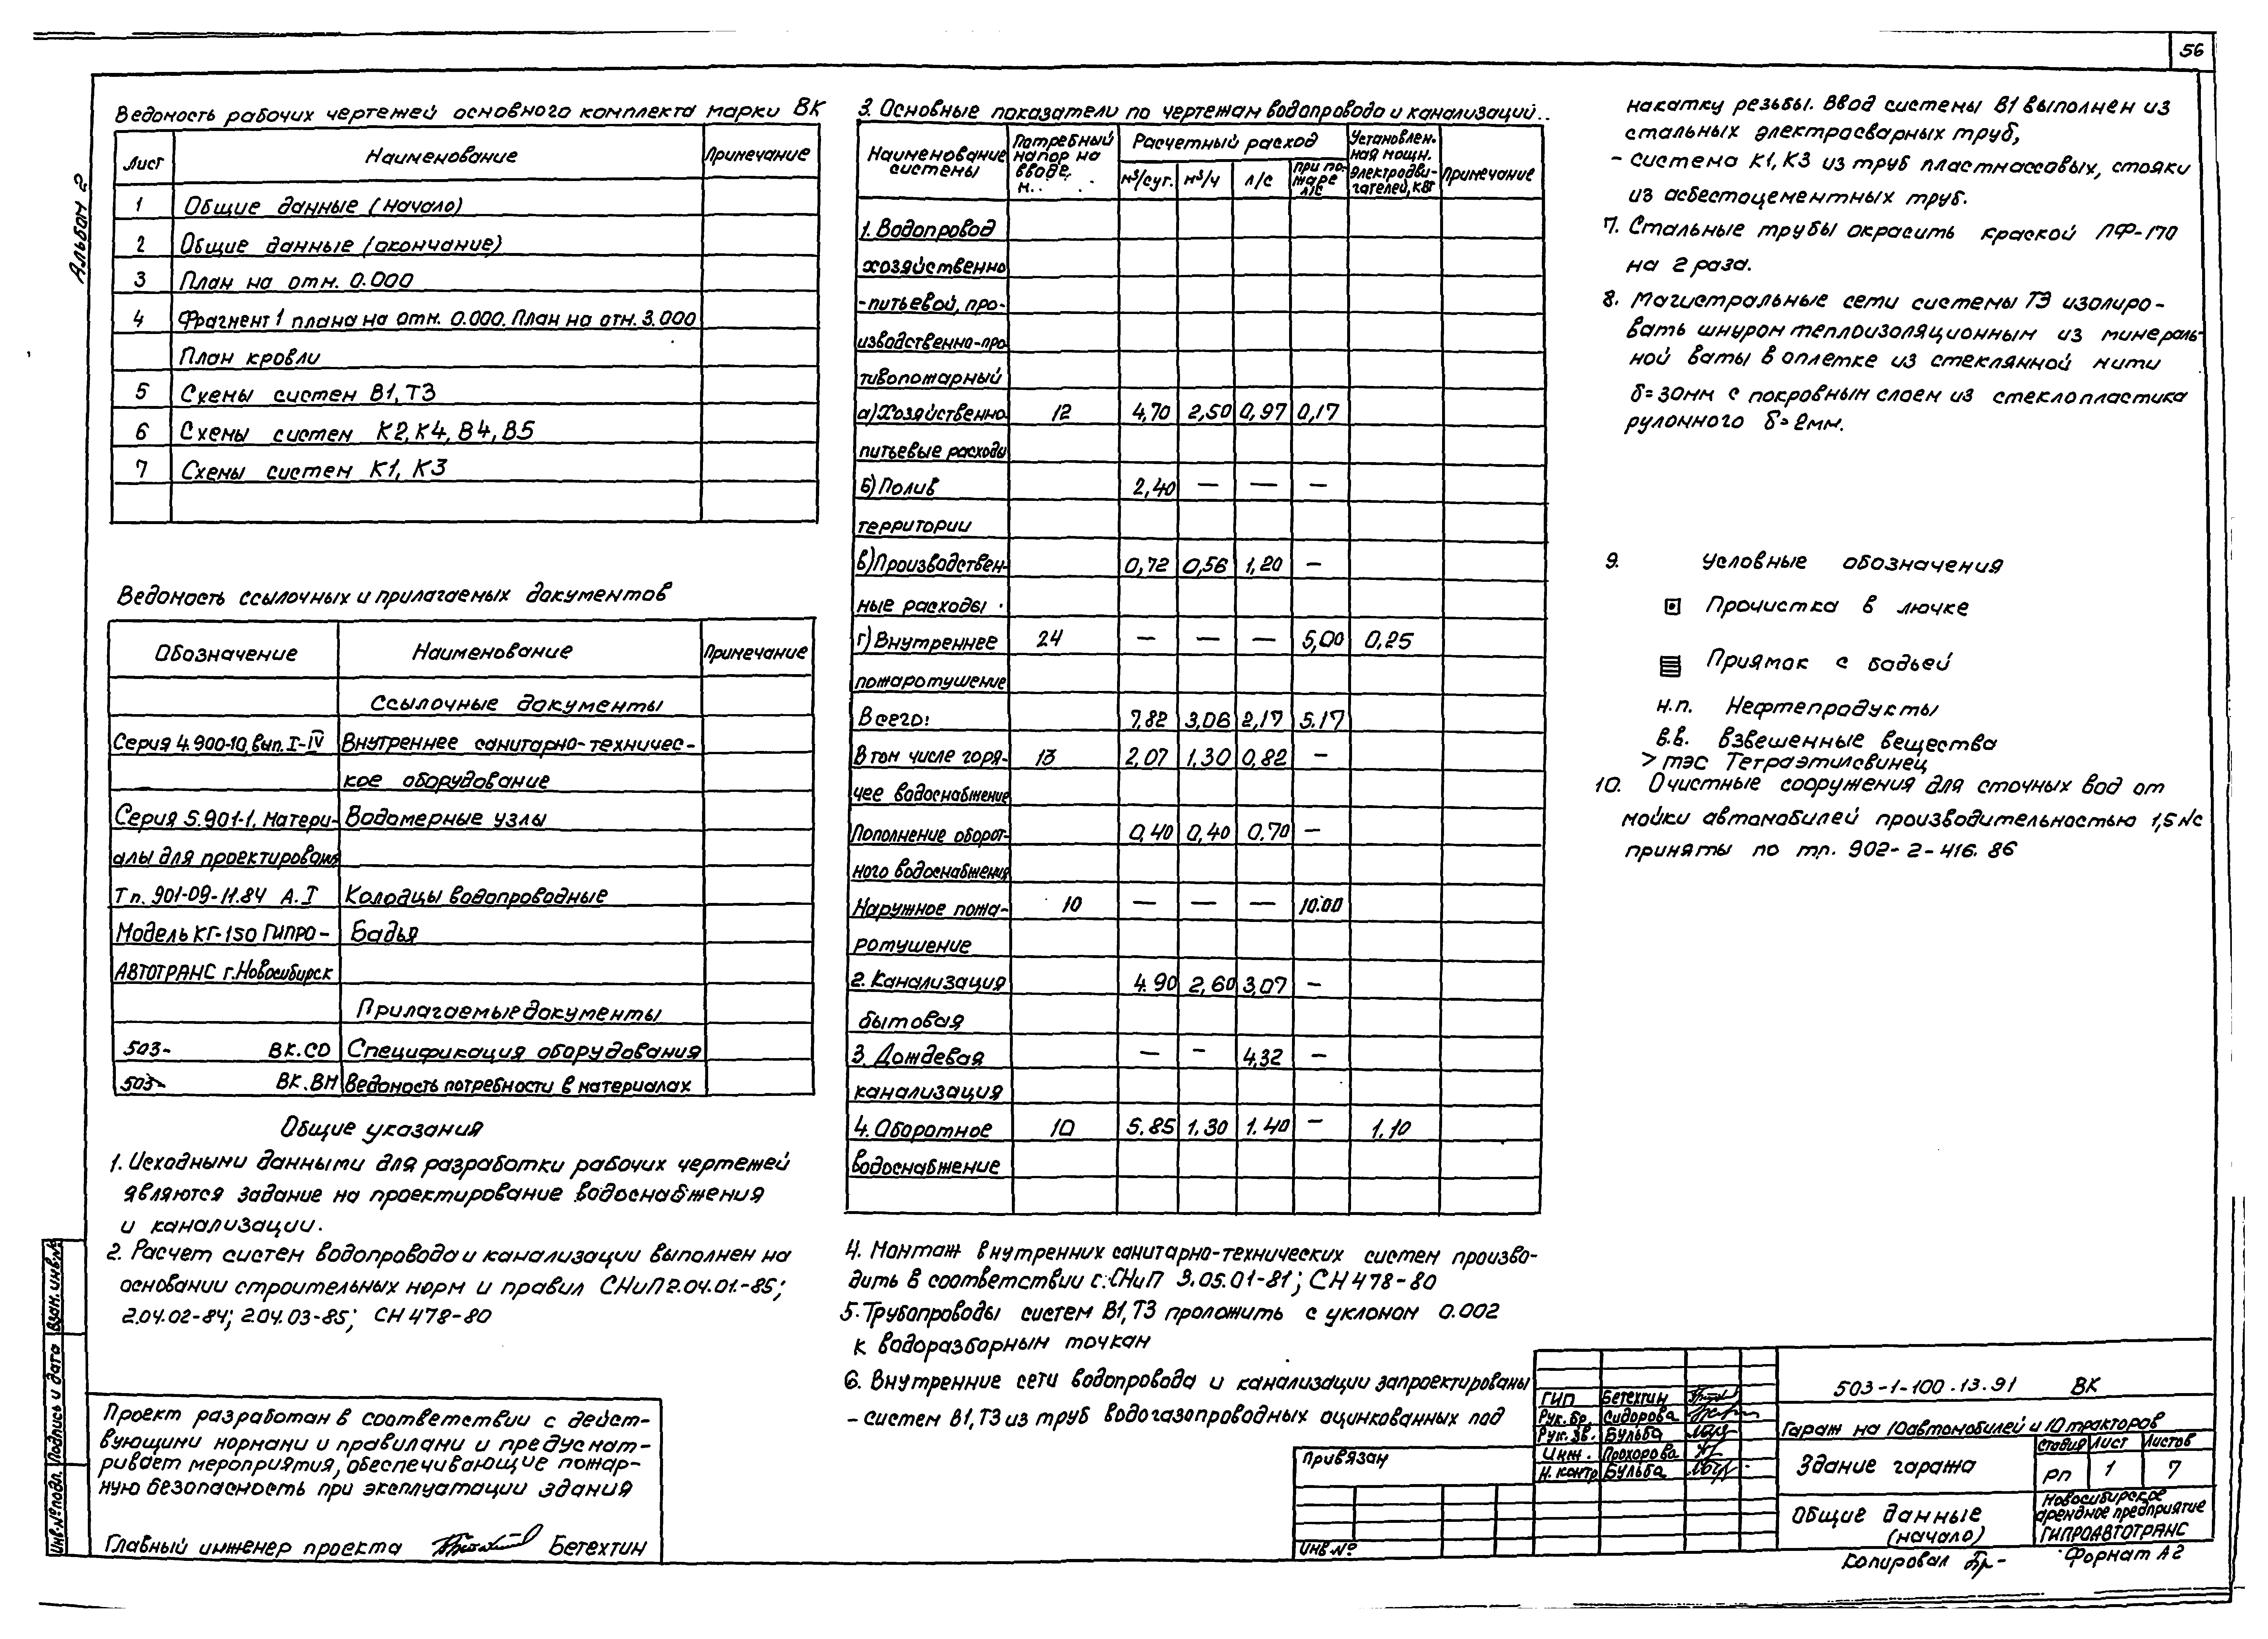 56
Альбом 2
Ведомость рабочих чертежей основного комплекта марки ВК
Лист Наименование Примечание
1 Общие данные (начало)
2 Общие данные (окончание)
3 План на отм. 0.000
4 Фрагмент 1 плана на отм. 0.000. План на отм. 3.000
План кровли
5 Схемы систем В1, Т3
6 Схемы систем К2, К4, В4, В5
7 Схемы систем К1, К3
Ведомость ссылочных и прилагаемых документов
Обозначение Наименование Примечание
Ссылочные документы
Серия 4.900-10, вып. I-IV Внутреннее санитарно-техничес-
кое оборудование
Серия 5.901-1. Матери- Водомерные узлы
алы для проектирования
Т п. 901-09-11.84 А. I Колодцы водопроводные
Модель КГ-150 ГИПРО- Бадья
АВТОТРАНС г.Новосибирск
Прилагаемые документы
503- ВК.СО Спецификация оборудования
503- ВК.ВМ Ведомость потребности в материалах
Общие указания
1. Исходными данными для разработки рабочих чертежей
являются задание на проектирование водоснабжения
и канализации.
2. Расчет систем водопровода и канализации выполнен на
основании строительных норм и правил СНиП 2.04.01.-85;
2.04.02-84; 2.04.03-85; СН 478-80
Проект разработан в соответствии с дейст-
вующими нормами и правилами и предусмат-
ривает мероприятия, обеспечивающие пожар-
ную безопасность при эксплуатации здания
Главный инженер проекта Бетехтин
Инв.№ подл. Подпись и дата Взам. инв.№
3. Основные показатели по чертежам водопровода и канализаций..
Наименование системы Потребный напор на вводе, м. Расчетный расход Установлен-ная мощн. электродви-гателей, кВт Примечание
м³/сут. м³/ч л/с при по-жаре л/с
1. Водопровод
хозяйственно
-питьевой, про-
изводственно-про
тивопожарный
а) Хозяйственно 12 4,70 2,50 0,97 0,17
питьевые расходы
б) Полив 2,40 — — —
территории
в) Производствен- 0,72 0,56 1,20 —
ные расходы
г) Внутреннее 24 — — — 5,00 0,25
пожаротушение
Всего: 7,82 3,06 2,17 5.17
В том числе горя- 13 2,07 1,30 0,82 —
чее водоснабжение
Пополнение оборот- 0,40 0,40 0.70 —
ного водоснабжения
Наружное пожа- 10 — — — 10.00
ротушение
2. Канализация 4.90 2,60 3,07 —
бытовая
3. Дождевая — — 4,32 —
канализация
4. Оборотное 10 5.85 1.30 1.40 — 1.10
водоснабжение
4. Монтаж внутренних санитарно-технических систем произво-
дить в соответствии с СНиП 3.05.01-81; СН 478-80
5. Трубопроводы систем В1, Т3 проложить с уклоном 0.002
к водоразборным точкам
6. Внутренние сети водопровода и канализации запроектированы
- систем В1, Т3 из труб водогазопроводных оцинкованных под
накатку резьбы. Ввод системы В1 выполнен из
стальных электросварных труб,
- система К1, К3 из труб пластмассовых, стояки
из асбестоцементных труб.
7. Стальные трубы окрасить краской ПФ-170
на 2 раза.
8. Магистральные сети системы Т3 изолиро-
вать шнуром теплоизоляционным из минераль-
ной ваты в оплетке из стеклянной нити
δ=30мм с покровным слоем из стеклопластика
рулонного δ=2мм.
9. Условные обозначения
Прочистка в лючке
Приямок с бадьей
н.п. Нефтепродукты
в.в. Взвешенные вещества
> тэс Тетраэтилсвинец
10. Очистные сооружения для сточных вод от
мойки автомобилей производительностью 1,5 л/с
приняты по тп. 902-2-416.86
Привязан
ИНВ.№
ГИП Бетехтин
Рук. бр. Сидорова
Рук. зв. Бульба
Инж. Прохорова
Н. контр Бульба
503-1-100.13.91 ВК
Гараж на 10 автомобилей и 10 тракторов
Здание гаража
Стадия Лист Листов
рп 1 7
Общие данные
(начало)
Новосибирское
арендное предприятие
ГИПРОАВТОТРАНС
Копировал Формат А2